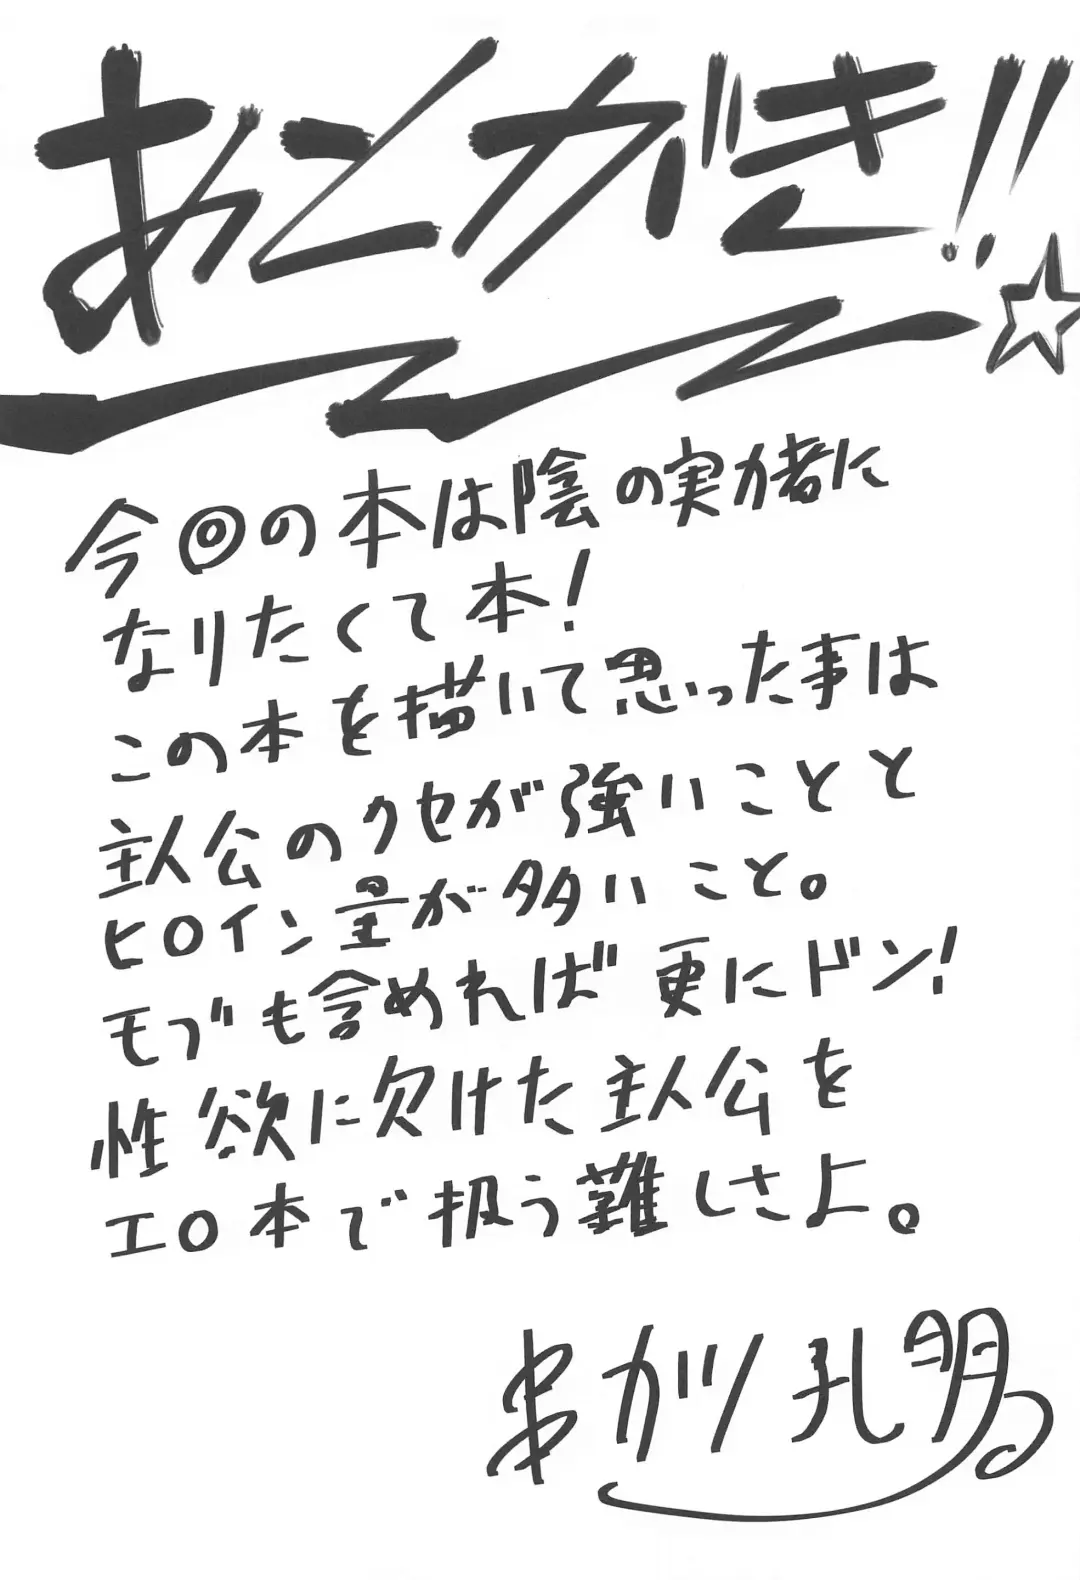 あとがき!!☆
今回の本は陰の実力者に
なりたくて本!
この本を描いて思った事は
主人公のクセが強いことと
ヒロイン量が多いこと。
モブも含めれば更にドン!
性欲に欠けた主人公を
エロ本で扱う難しさよ。
串カツ孔明